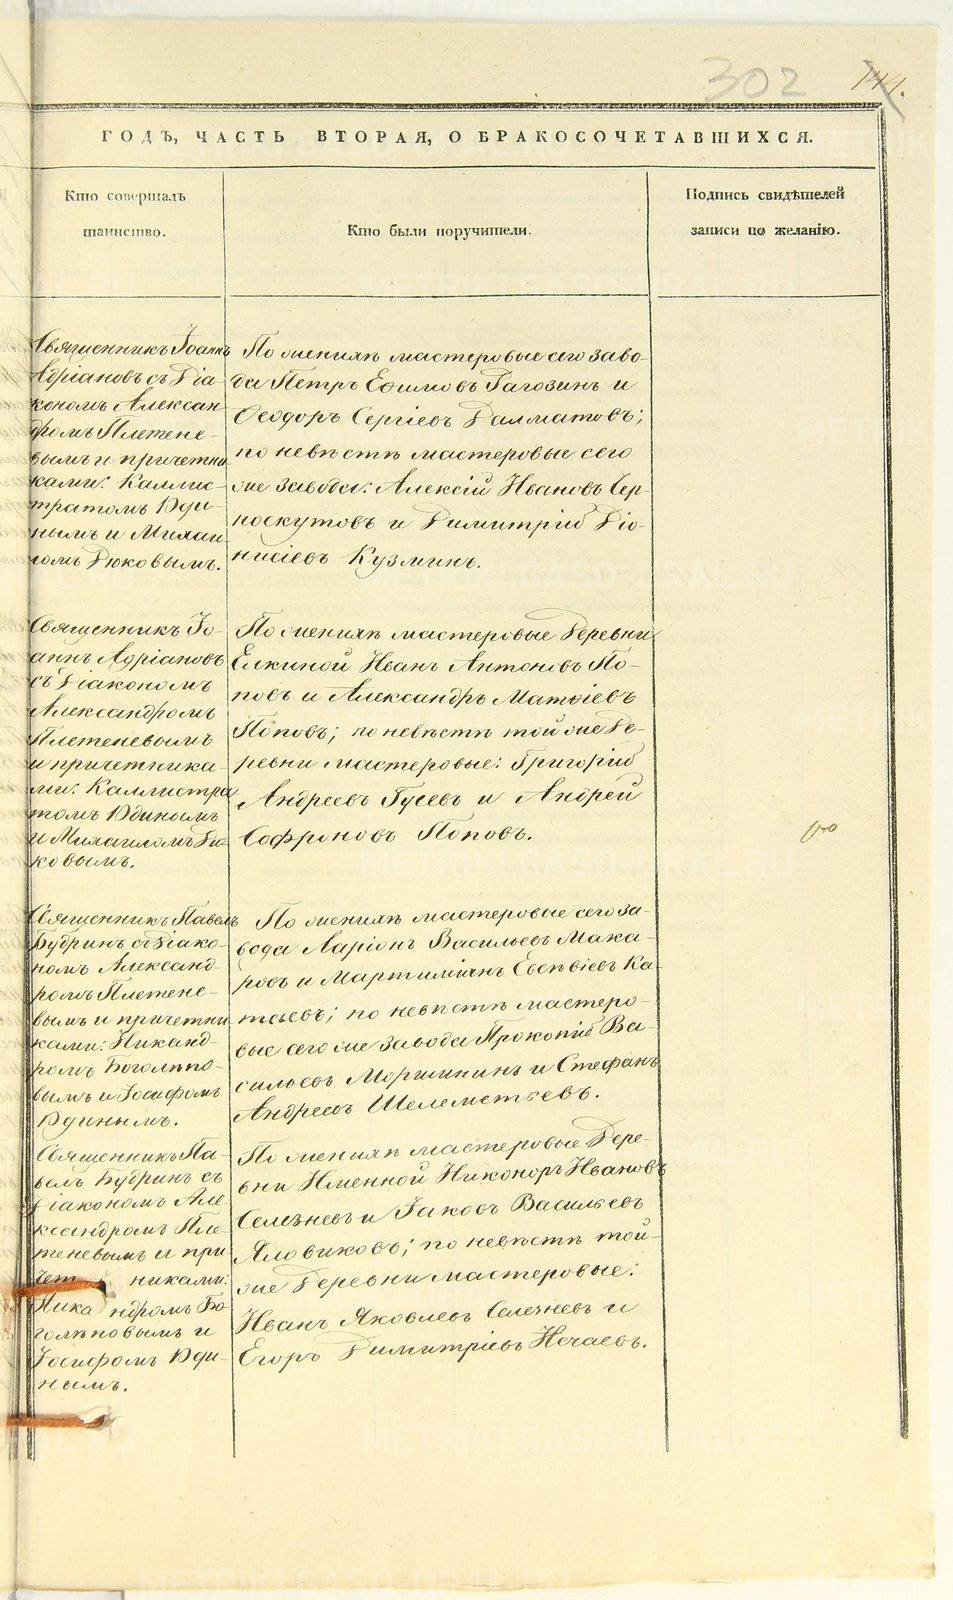 302
144.
ГОДЪ, ЧАСТЬ ВТОРАЯ, О БРАКОСОЧЕТАВШИХСЯ.
Кто совершалъ
таинство.
Кто были поручители.
Подпись свидѣтелей
записи по желанію.
Священникъ Іоаннъ
Адріановъ съ діа-
кономъ Алексан-
дромъ Плетене-
вымъ и причетни-
ками: Каллис-
тратомъ Юди-
нымъ и Михаи-
ломъ Дюковымъ.
По женихѣ мастеровые сего заво-
да Петръ Ефимовъ Рагозинъ и
Ѳеодоръ Сергіевъ Далматовъ;
по невѣстѣ мастеровые сего
же завода: Алексій Ивановъ Чер-
носкутовъ и Димитрій Діо-
нисіевъ Кузминъ.
Священникъ Іо-
аннъ Адріановъ
съ діакономъ
Александромъ
Плетеневымъ
и причетника-
ми: Каллистра
томъ Юдинымъ
и Михаиломъ Дю
ковымъ.
По женихѣ мастеровые деревни
Елкиной Иванъ Антоновъ По-
повъ и Александръ Матѳіевъ
Поповъ; по невѣстѣ той же де-
ревни мастеровые: Григорій
Андреевъ Гусевъ и Андрей
Софроновъ Поповъ.
Священникъ Павелъ
Будринъ съ діако-
номъ Александ-
ромъ Плетене-
вымъ и причетни
ками: Никанд-
ромъ Боголѣпо-
вымъ и Іосифомъ
Юдинымъ.
По женихѣ мастеровые сего за-
вода Ларіонъ Васильевъ Мака-
ровъ и Мартиміанъ Евсѣвіевъ Ка-
тьевъ; по невѣстѣ мастеро-
вые сего же завода Прокопій Ва-
сильевъ Моршининъ и Стефанъ
Андреевъ Шелеметьевъ.
Священникъ Па-
велъ Будринъ съ
діакономъ Але
ксандромъ Пле-
теневымъ и при
чет никами:
Ника ндромъ Бо-
голѣповымъ и
Іосифомъ Юди-
нымъ.
По женихѣ мастеровые дере-
вни Именной Никоноръ Ивановъ
Селезневъ и Іаковъ Васильевъ
Яловиковъ; по невѣстѣ той-
же деревни мастеровые:
Иванъ Яковлевъ Селезневъ и
Егоръ Димитріевъ Нечаевъ.